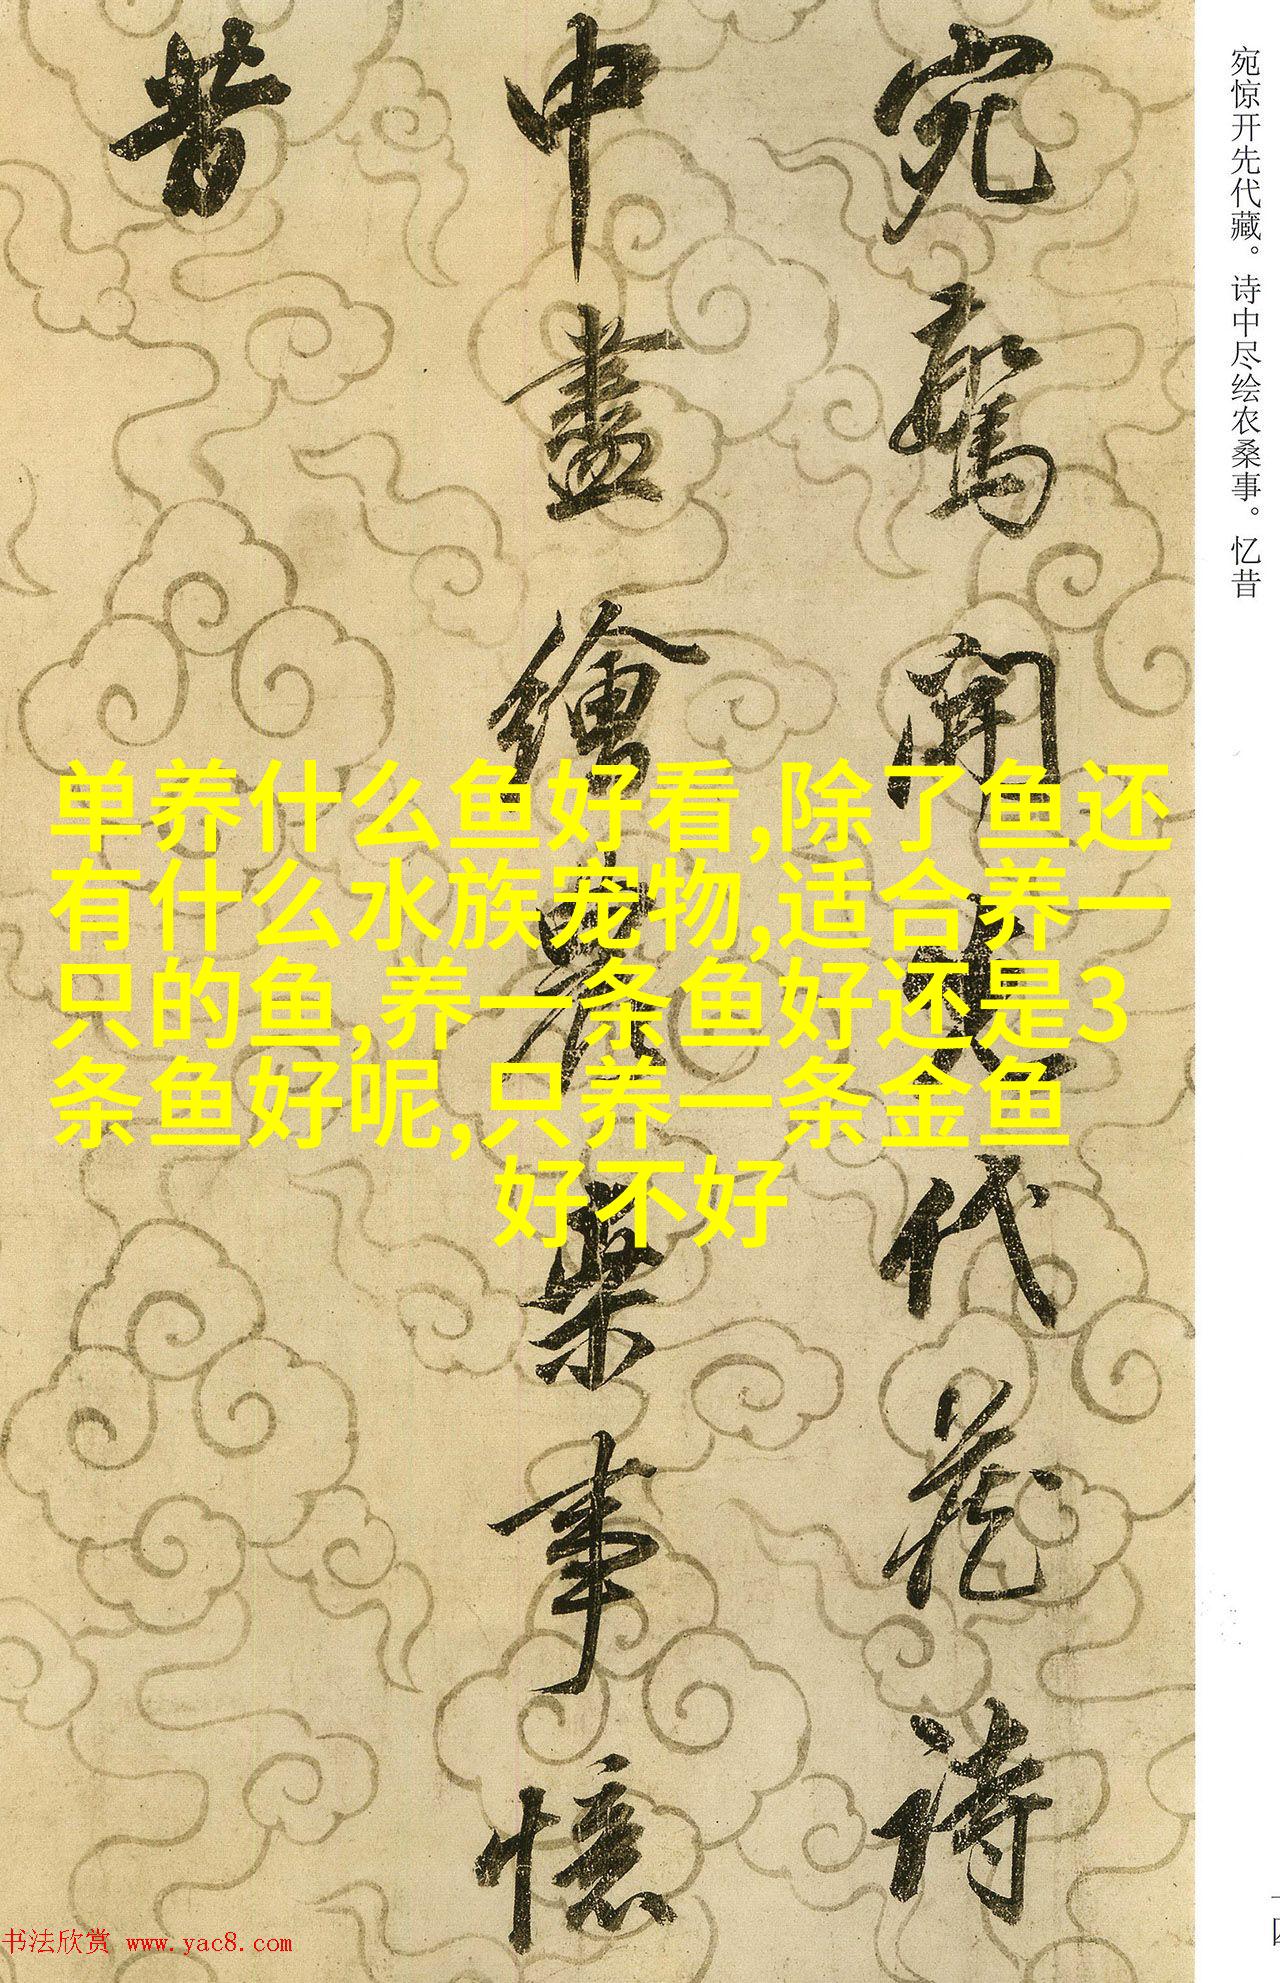 宛驚開先代藏詩
中盡繪農桑事憶
昔
宛惊开先代藏。诗中尽绘农桑事。忆昔
单养什么鱼好看,除了鱼还
有什么水族宠物,适合养一
只的鱼,养一条鱼好还是3
条鱼好呢,只养一条金鱼
好不好
书法欣赏 www.yac8.com